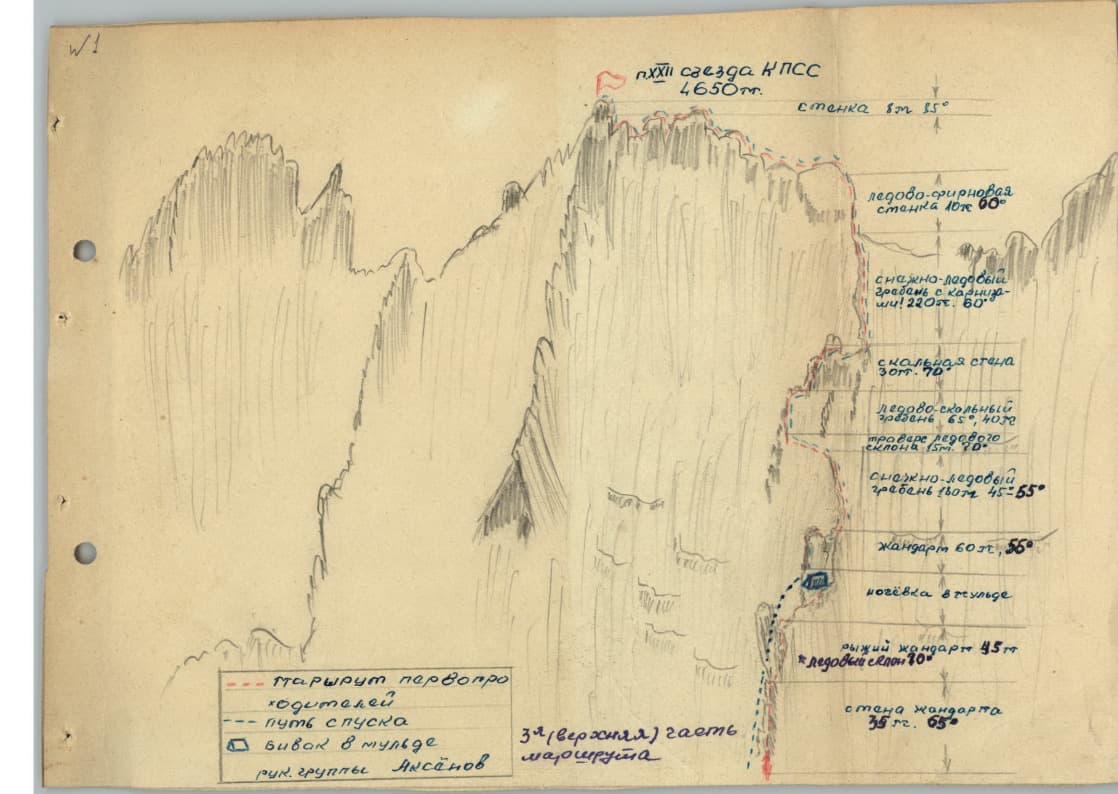 №1
п. XXII съезда КПСС
4650 м.
стенка 8 м 85°
ледово-фирновая
стенка 10 м 60°
снежно-ледовый
гребень с карниза-
ми! 220 м. 60°
скальная стена
30 м. 70°
ледово-скальный
гребень 65°, 40 м
траверс ледового
склона 15 м. 70°
снежно-ледовый
гребень 180 м 45°-55°
жандарм 60 м, 55°
ночёвка в мульде
рыжий жандарм 45 м
* ледовый склон 70°
стена жандарма
35 м. 65°
маршрут первопро
ходителей
путь спуска
бивак в мульде
рук. группы Аксёнов
3я (верхняя) часть
маршрута